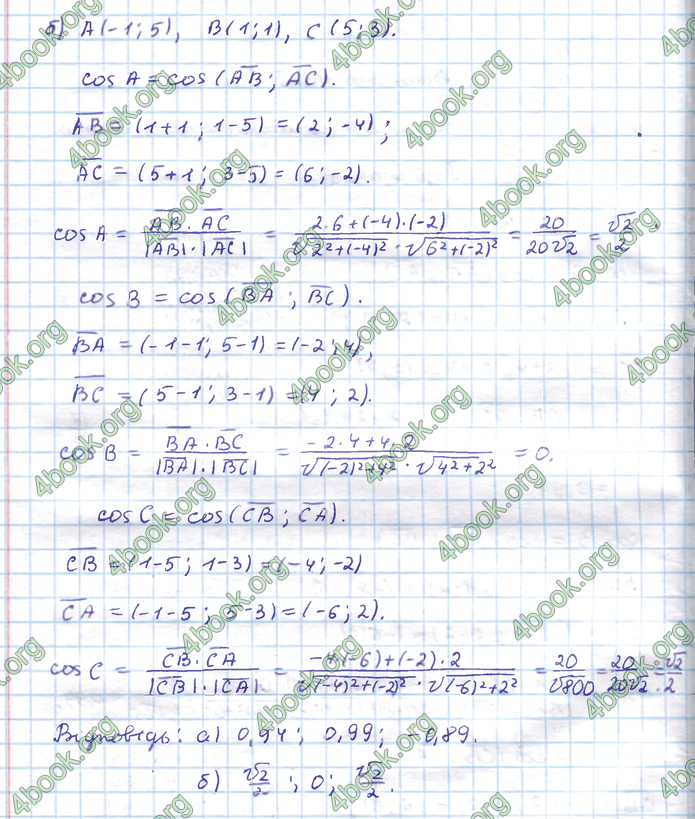 б) A(-1; 5), B(1; 1), C(5; 3).
cos A = cos(AB; AC).
AB = (1+1; 1-5) = (2; -4);
AC = (5+1; 3-5) = (6; -2).
cos A = AB·AC / |AB|·|AC| = 2·6+(-4)·(-2) / √2²+(-4)² · √6²+(-2)² = 20 / 20√2 = √2 / 2.
cos B = cos(BA; BC).
BA = (-1-1; 5-1) = (-2; 4),
BC = (5-1; 3-1) = (4; 2).
cos B = BA·BC / |BA|·|BC| = -2·4+4·2 / √(-2)²+4² · √4²+2² = 0.
cos C = cos(CB; CA).
CB = (1-5; 1-3) = (-4; -2)
CA = (-1-5; 5-3) = (-6; 2).
cos C = CB·CA / |CB|·|CA| = -4(-6)+(-2)·2 / √(-4)²+(-2)² · √(-6)²+2² = 20 / √800 = 20 / 20√2 = √2 / 2
Відповідь: а) 0,94; 0,99; -0,89.
б) √2 / 2; 0; √2 / 2.
4book.org